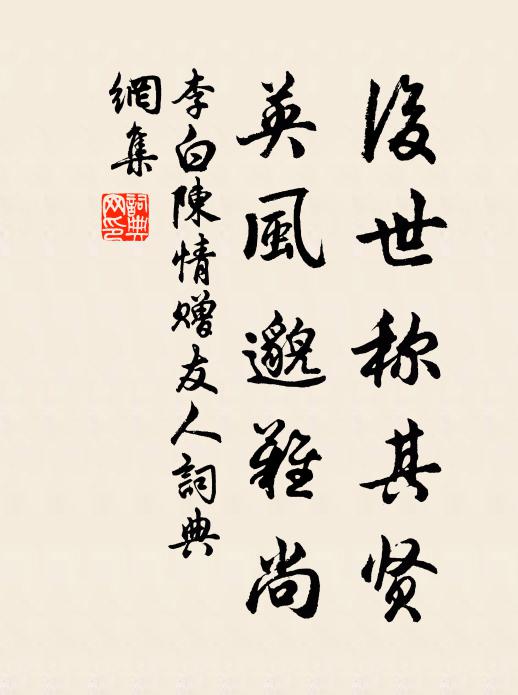 後世称其贤
英風邈難尚
李白陳情赠友人詞典
網集
詞典
网印